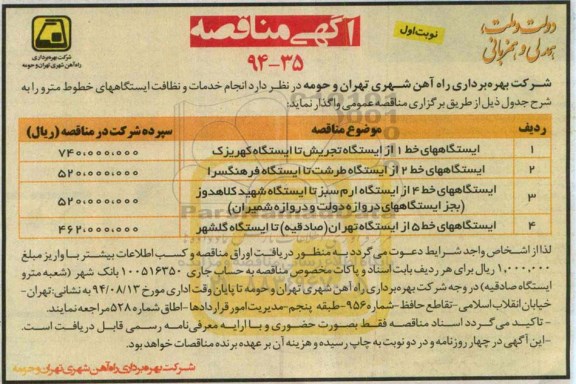 دولت و ملت،
همدلی و همزبانی
نوبت اول
آگهی مناقصه
۹۴-۳۵
شرکت بهره‌برداری
راه آهن شهری تهران و حومه
شرکت بهره‌برداری راه آهن شهری تهران و حومه در نظر دارد انجام خدمات و نظافت ایستگاههای خطوط مترو را به
شرح جدول ذیل از طریق برگزاری مناقصه عمومی واگذار نماید:
ردیف موضوع مناقصه سپرده شرکت در مناقصه (ریال)
۱ ایستگاههای خط ۱ از ایستگاه تجریش تا ایستگاه کهریزک ۷۴۰،۰۰۰،۰۰۰
۲ ایستگاههای خط ۲ از ایستگاه طرشت تا ایستگاه فرهنگسرا ۵۲۰،۰۰۰،۰۰۰
۳ ایستگاههای خط ۴ از ایستگاه ارم سبز تا ایستگاه شهید کلاهدوز ۵۲۰،۰۰۰،۰۰۰
(بجز ایستگاههای دروازه دولت و دروازه شمیران)
۴ ایستگاههای خط ۵ از ایستگاه تهران (صادقیه) تا ایستگاه گلشهر ۴۶۲،۰۰۰،۰۰۰
لذا از اشخاص واجد شرایط دعوت می گردد به منظور دریافت اوراق مناقصه و کسب اطلاعات بیشتر با واریز مبلغ
۱،۰۰۰،۰۰۰ ریال برای هر ردیف بابت اسناد و پاکات مخصوص مناقصه به حساب جاری ۱۰۰۵۱۶۳۵۰ بانک شهر (شعبه مترو
ایستگاه صادقیه) در وجه شرکت بهره‌برداری راه آهن شهری تهران و حومه تا پایان وقت اداری مورخ ۹۴/۰۸/۱۳ به نشانی: تهران-
خیابان انقلاب اسلامی -تقاطع حافظ -شماره ۹۵۶-طبقه پنجم -مدیریت امور قراردادها -اطاق شماره ۵۲۸ مراجعه نمایند.
- تاکید می گردد اسناد مناقصه فقط بصورت حضوری و با ارایه معرفی‌نامه رسمی قابل دریافت است.
-این آگهی در چهار روزنامه و در دو نوبت به چاپ رسیده و هزینه آن بر عهده برنده مناقصات خواهد بود.
شرکت بهره‌برداری راه‌آهن شهری تهران و حومه